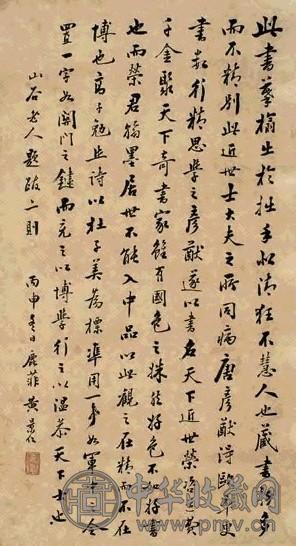 此書摹搨出於拙手似清狂不慧人也藏書務多
而不精別此近世士大夫之所同病唐彥猷詩歐史
書最行精思學之彥猷遂以書名天下近世榮咨道費
千金聚天下奇書家雖有國色之姝能好色不如好書
也而榮君翰墨居世不能入中品以此觀之在精而不在
博也高子勉作詩以杜子美為標準用一事如軍中之令
置一字如關門之鍵而充之以博學行之以溫恭天下士也
山谷老人題跋二則
丙申冬日 黃
中华收藏网
www.pmv.cn